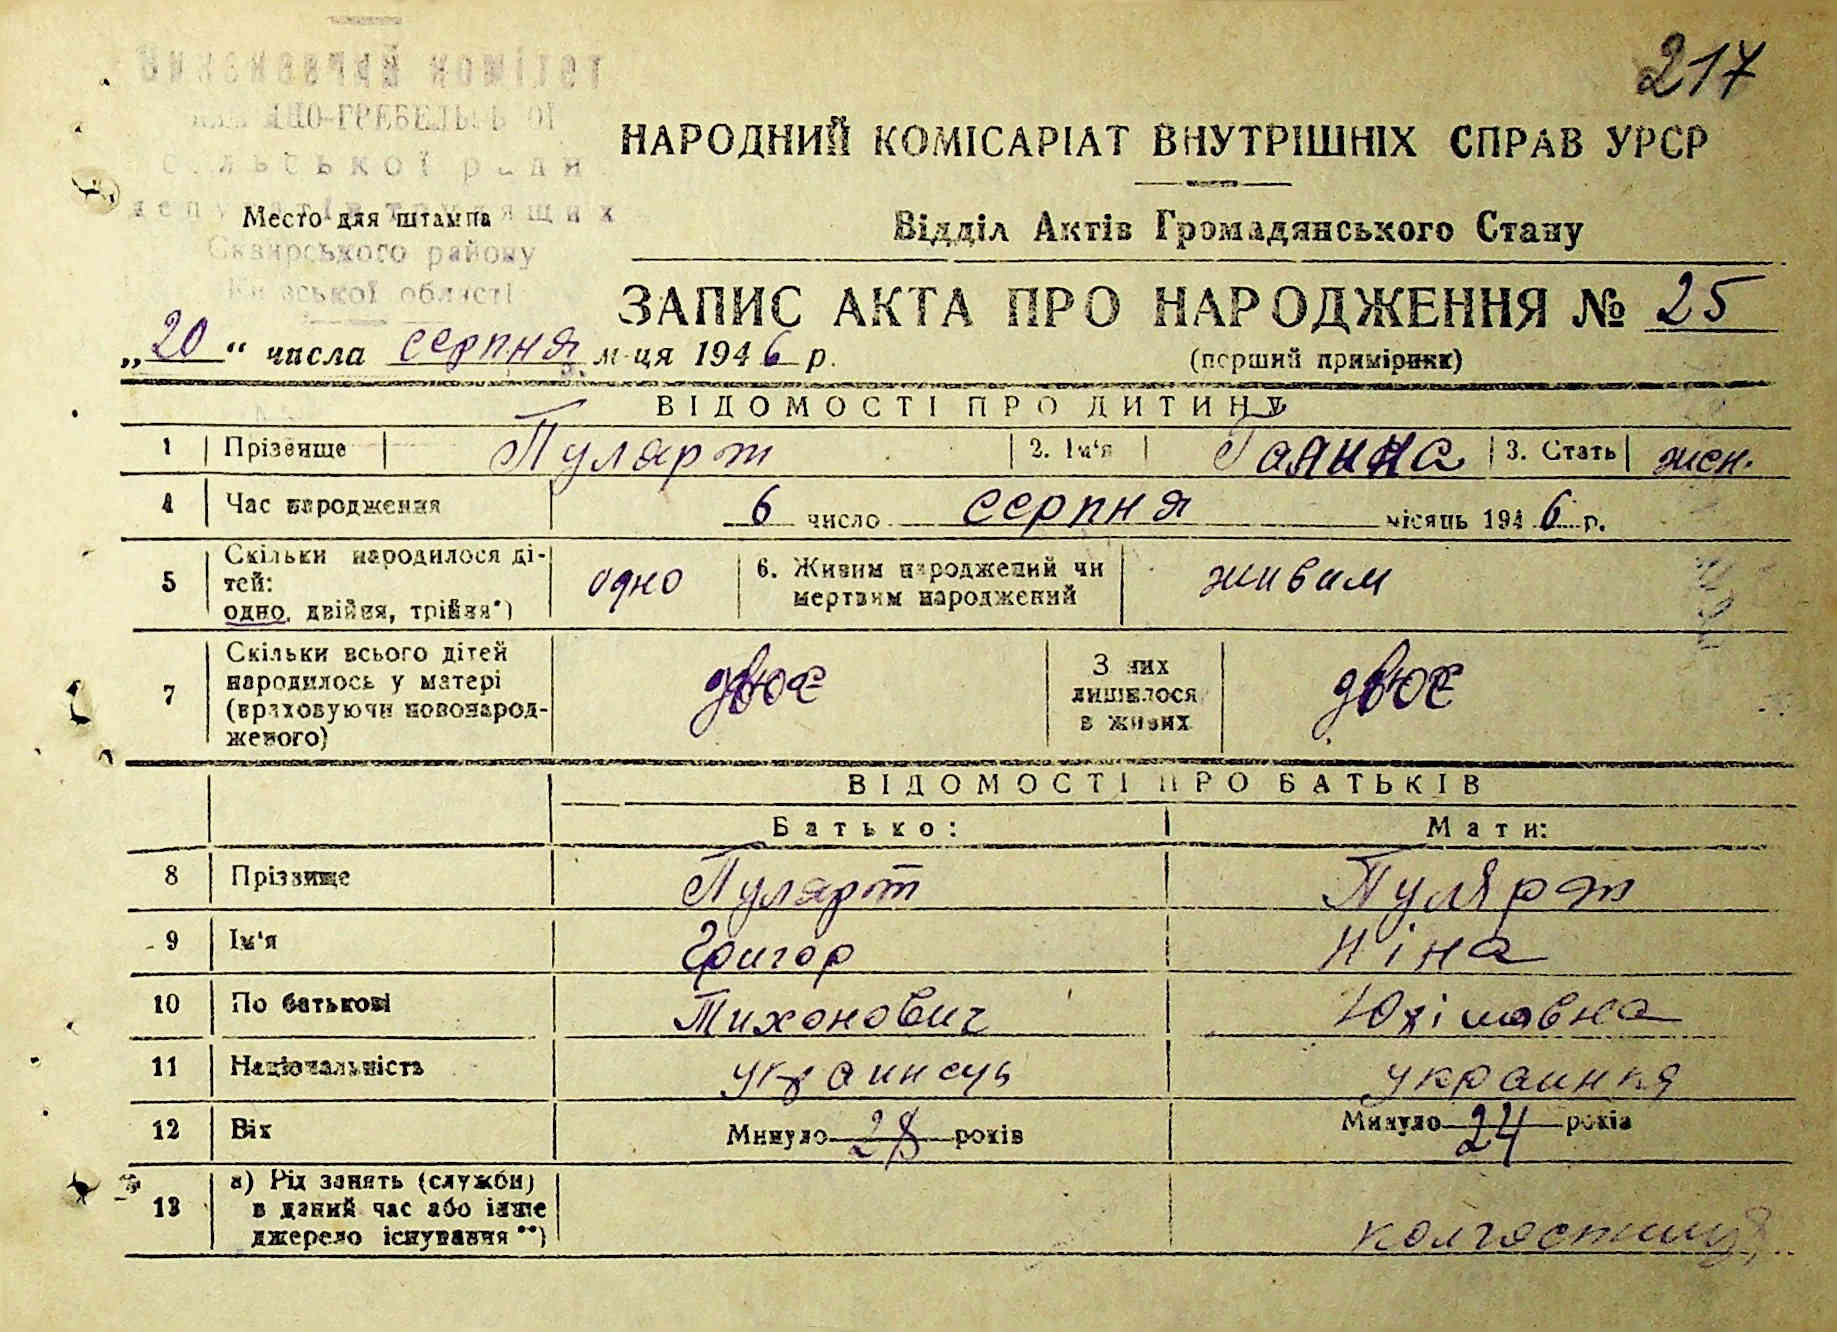 217
НАРОДНИЙ КОМІСАРІАТ ВНУТРІШНІХ СПРАВ УРСР
ГРЕБЕЛЬ
сільської ради
депутатів трудящих
Место для штампа
Сквирського району
Київської області
Відділ Актів Громадянського Стану
ЗАПИС АКТА ПРО НАРОДЖЕННЯ № 25
„20“ числа серпня м-ця 1946 р.
(перший примірник)
ВІДОМОСТІ ПРО ДИТИНУ
1 Прізвище Пулярт 2. Ім'я Галина 3. Стать жен.
4 Час народження 6 число серпня місяць 1946 р.
5 Скільки народилося дітей: одно, двійня, трійня*) одно 6. Живим народжений чи мертвим народжений живим
7 Скільки всього дітей народилось у матері (враховуючи новонародженого) двоє З них лишилося в живих двоє
ВІДОМОСТІ ПРО БАТЬКІВ
Батько: Мати:
8 Прізвище Пулярт Пулярт
9 Ім'я Григор Ніна
10 По батькові Тихонович Юхімовна
11 Національність украинець украинка
12 Вік Минуло 28 років Минуло 24 років
13 а) Рід занять (служби) в даний час або інше джерело існування **) колгостниця